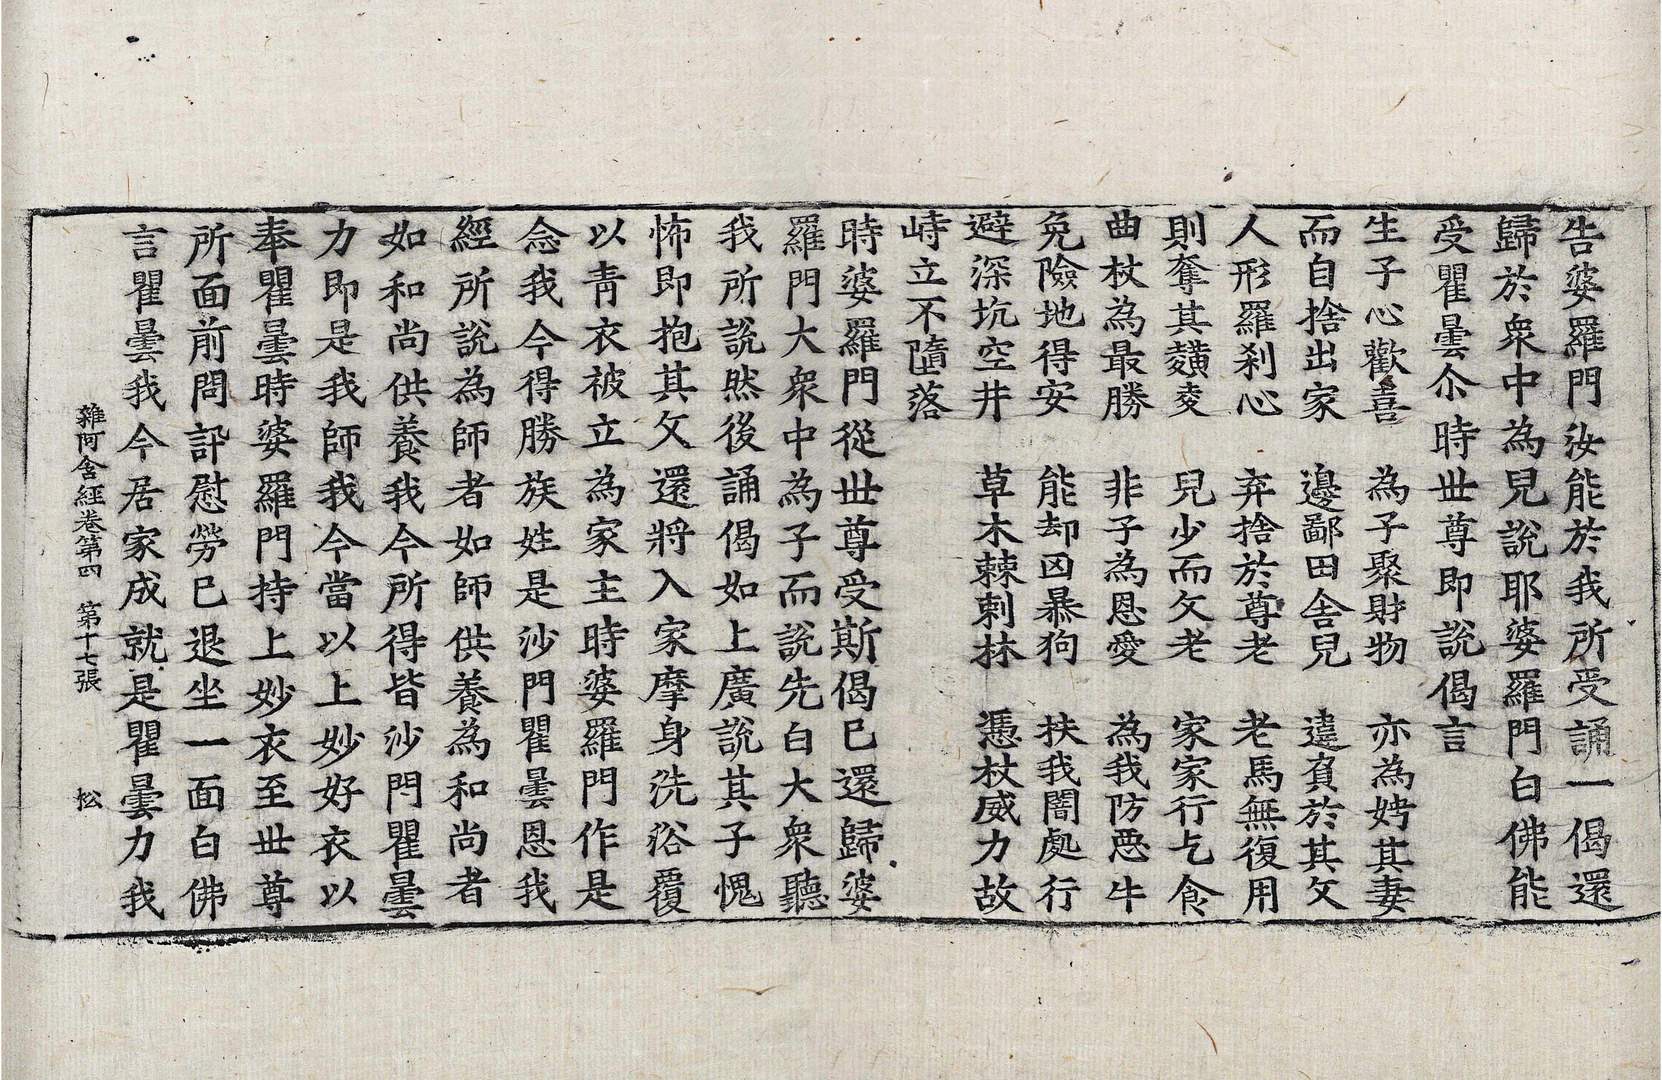 告婆羅門汝能於我所受誦一偈還
歸於衆中為兒說耶婆羅門白佛能
受瞿曇尒時世尊即說偈言
生子心歡喜　為子聚財物　亦為娉其妻
而自捨出家　邊鄙田舍兒　違負於其父
人形羅刹心　弃捨於尊老　老馬無復用
則奪其䵃麥　兒少而父老　家家行乞食
曲杖為最勝　非子為恩愛　為我防惡牛
免險地得安　能却凶暴狗　扶我闇處行
避深坑空井　草木棘刺林　憑杖威力故
峙立不墮落
時婆羅門從世尊受斯偈已還歸婆
羅門大衆中為子而說先白大衆聽
我所說然後誦偈如上廣說其子愧
怖即抱其父還將入家摩身洗浴覆
以青衣被立為家主時婆羅門作是
念我今得勝族姓是沙門瞿曇恩我
經所說為師者如師供養為和尚者
如和尚供養我今所得皆沙門瞿曇
力即是我師我今當以上妙好衣以
奉瞿曇時婆羅門持上妙衣至世尊
所面前問訊慰勞已退坐一面白佛
言瞿曇我今居家成就是瞿曇力我
雜阿含經卷第四　第十七張　松